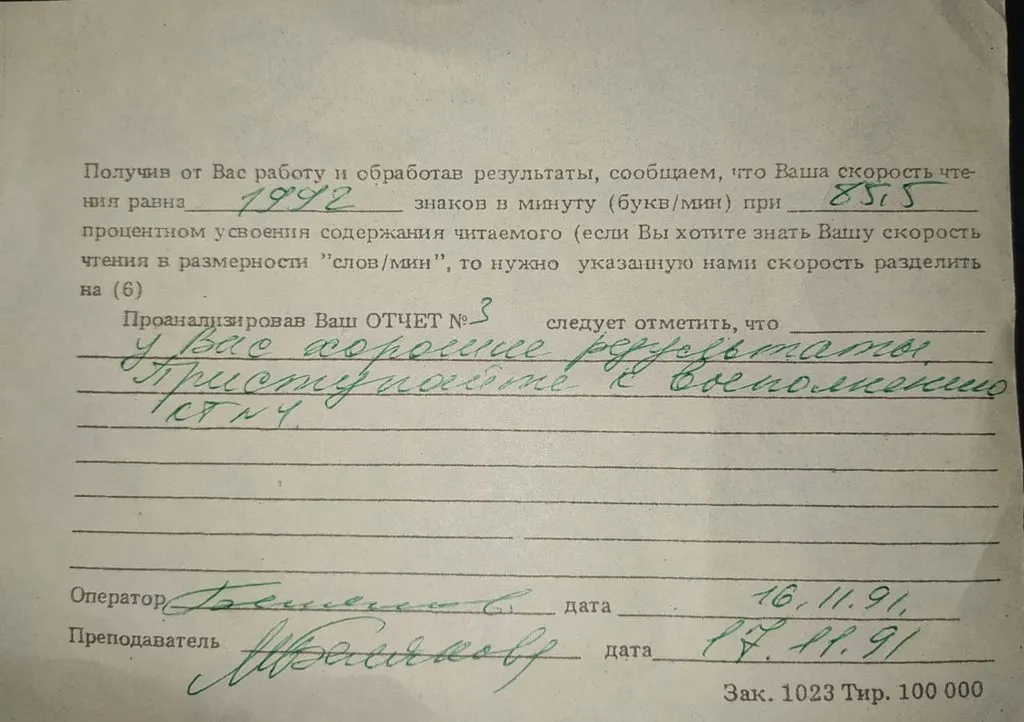 Получив от Вас работу и обработав результаты, сообщаем, что Ваша скорость чте-
ния равна 1992 знаков в минуту (букв/мин) при 85,5
процентном усвоения содержания читаемого (если Вы хотите знать Вашу скорость
чтения в размерности "слов/мин", то нужно указанную нами скорость разделить
на (6)
Проанализировав Ваш ОТЧЕТ № 3 следует отметить, что
у Вас хорошие результаты.
Приступайте к восполнению
КТ №4.
Оператор дата 16.11.91.
Преподаватель дата 17.11.91
Зак. 1023 Тир. 100 000